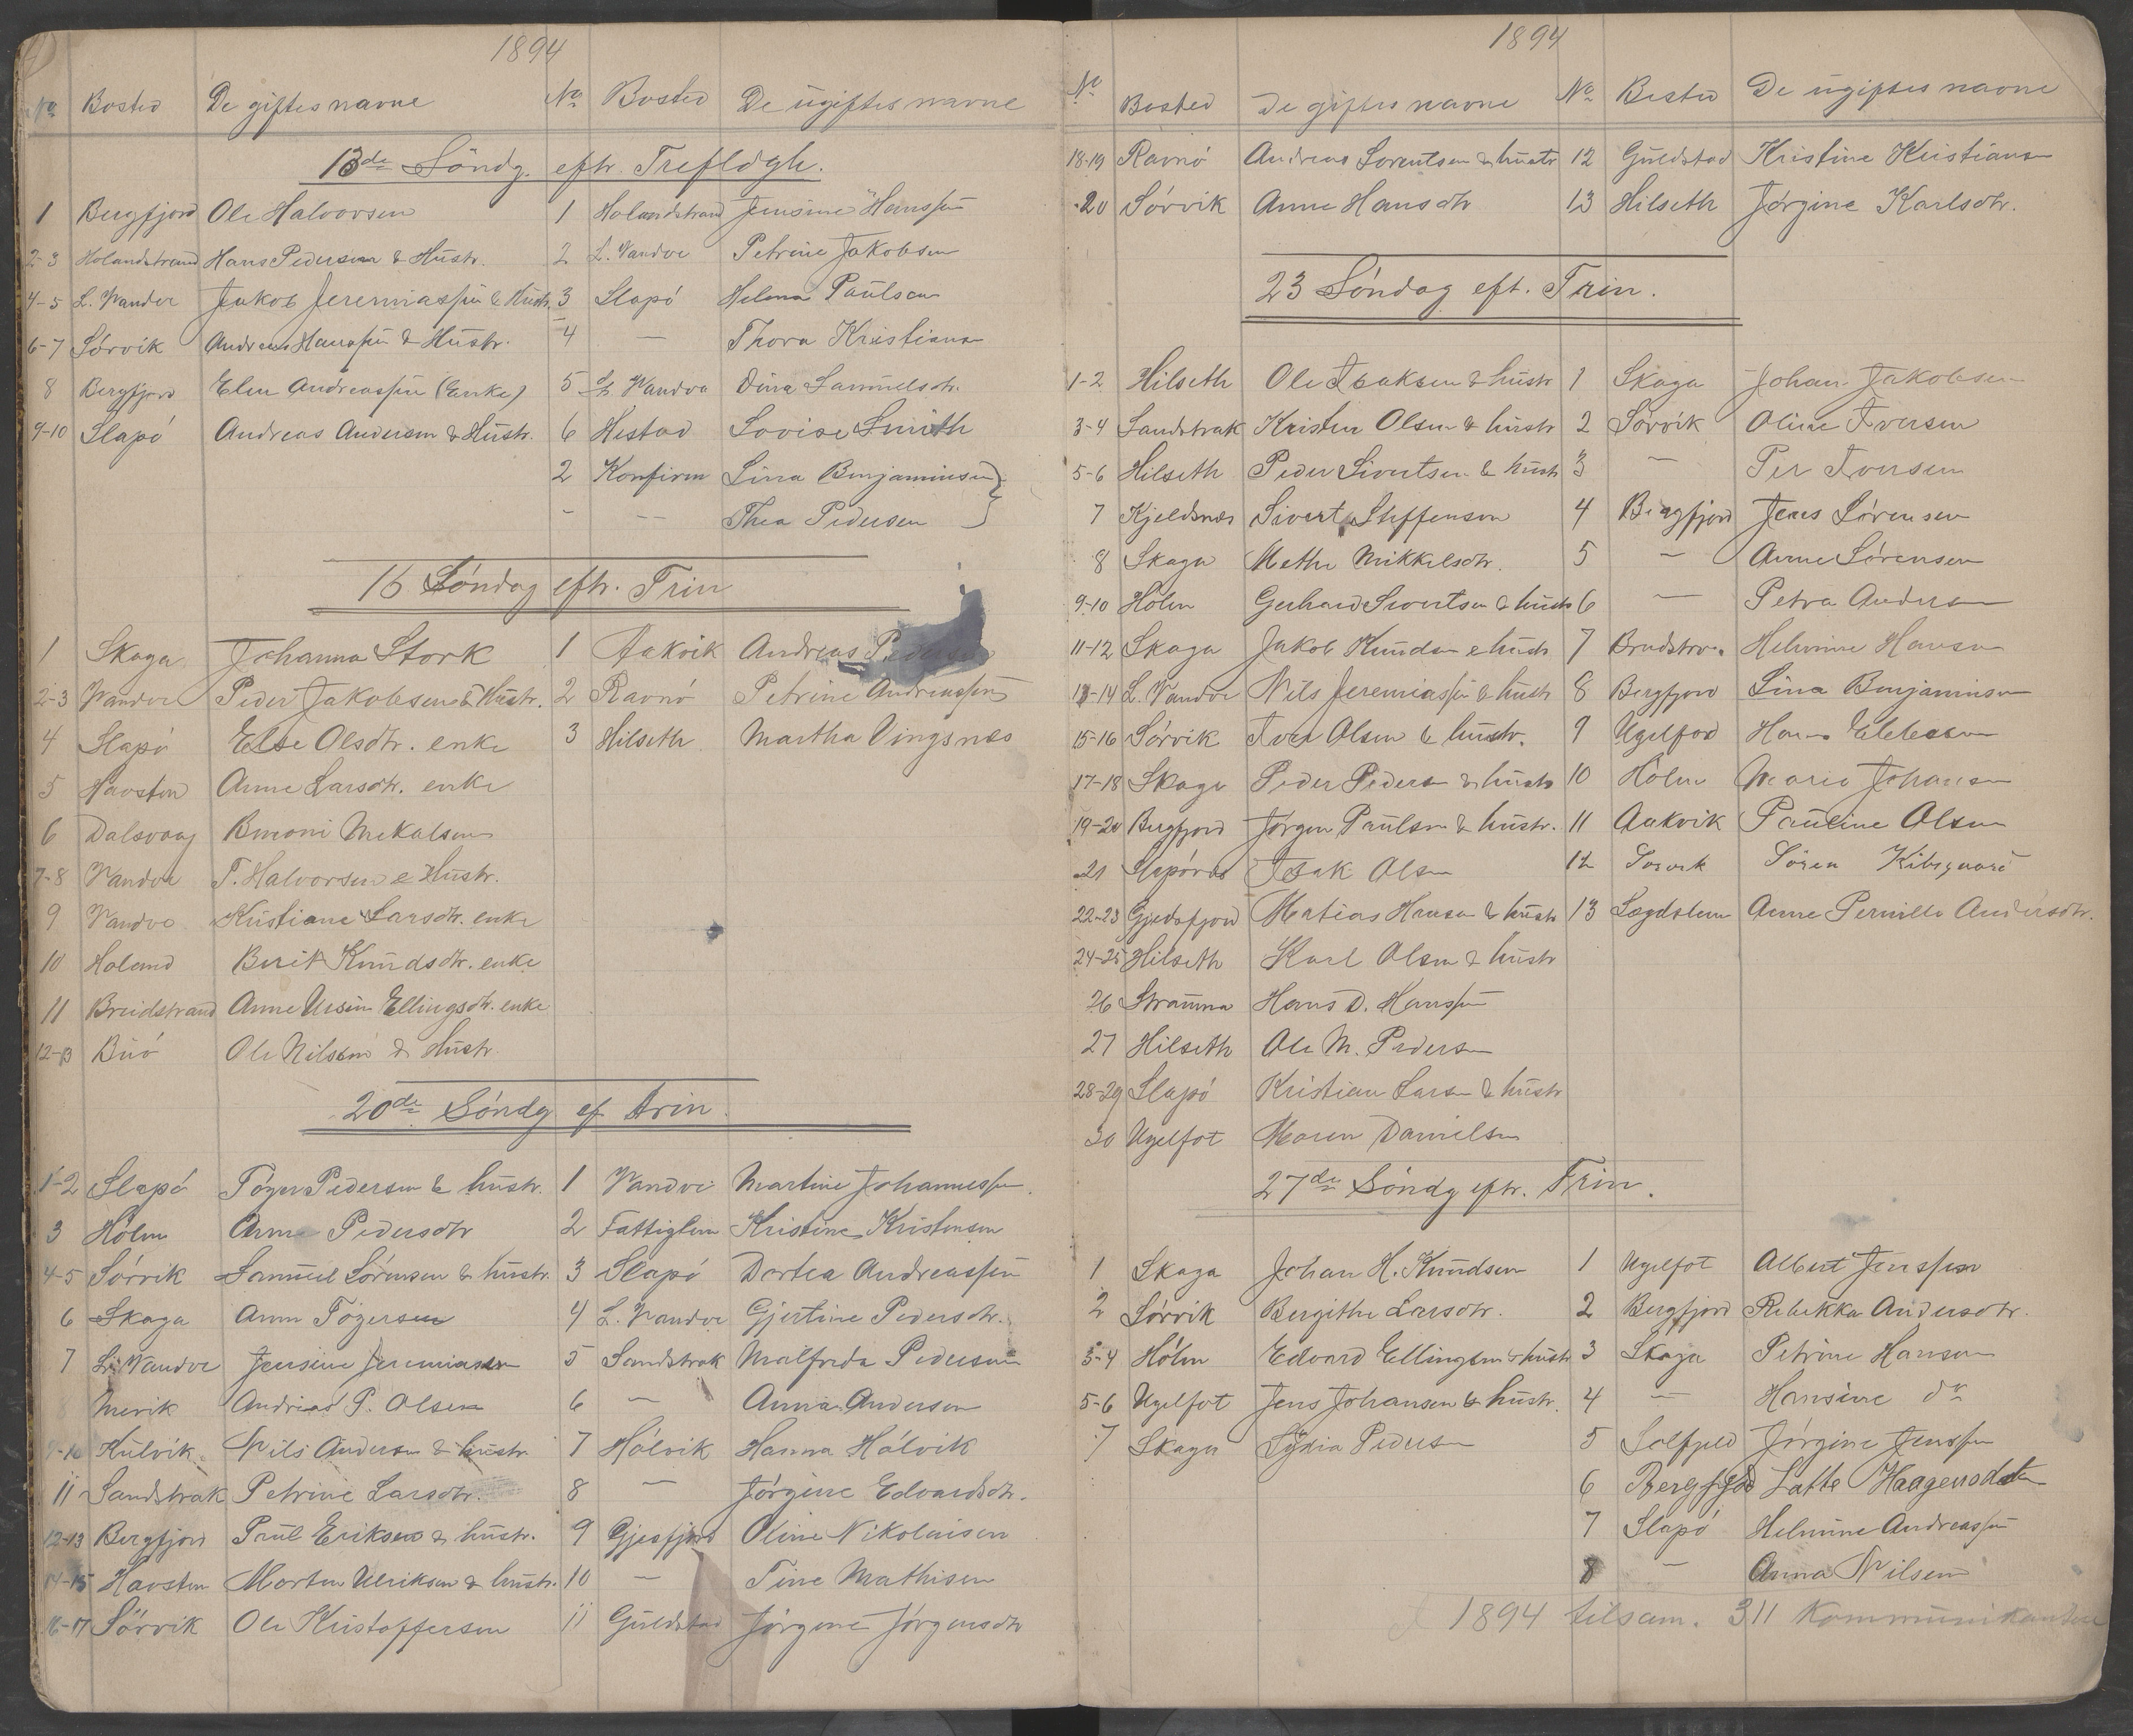 1894
No Bosted De giftes navne No Bosted De ugiftes navne
13de Søndg. eftr. Trefldgh.
1 Bergfjord Ole Halvorsen 1 Holandstrand Jensine Hanssen
2-3 Holandstrand Hans Pedersen & Hustr. 2 L. Vandve Petrine Jakobsen
4-5 L. Vandve Jakob Jeremiassen & Hustr. 3 Slapö Helena Paulsen
6-7 Sörvik Andreas Hanssen & Hustr. 4 — Thora Kristians
8 Bergfjord Elen Andreassen (Enke) 5 L. Vandve Dina Samuelsdtr.
9-10 Slapö Andreas Andersen & Hustr. 6 Hestad Lovise Smith
2 Konfirm Lina Benjaminsen
- — Thea Pedersen
16 Søndag eftr. Trin
1 Skaga Johanna Stork 1 Aakvik Andreas Pedersen
2-3 Vandve Peder Jakobsen & Hustr. 2 Ravnö Petrine Andreassen
4 Slapö Else Olsdtr. enke 3 Hilseth Martha Vingsnes
5 Havsten Anne Larsdtr. enke
6 Dalsvaag Benoni Mekalsen
7-8 Vandve T. Halvorsen & Hustr.
9 Vandve Kristiane Larsdtr. enke
10 Holand Berit Knudsdtr. enke
11 Breidstrand Anne Ursin Ellingsdtr. enke
12-13 Buö Ole Nilsen & Hustr.
20de Søndg ef trin.
1-2 Slapö Töger Pedersen & hustr. 1 Vandve Martine Johannessen
3 Holm Anne Pedersdtr 2 Fattiglem Kristine Kristensen
4-5 Sörvik Samuel Sörensen & hustr. 3 Slapö Dortea Andreassen
6 Skaga Anne Tögersen 4 L. Vandve Gjertine Pedersdtr.
7 L. Vandve Jensine Jeremiassen 5 Sandstrak Malfrida Pedersen
Mevik Andreas P. Olsen 6 — Anna Andersen
9-10 Kulvik Nils Andersen & hustr 7 Hölvik Hanna Hölvik
11 Sandstrak Petrine Larsdtr. 8 — Jörgine Edvardsdtr.
12-13 Bergfjord Paul Eriksen & hustr. 9 Gjesfjord Oline Nikolaisen
14-15 Havsten Morten Ulriksen & hustr. 10 — Tine Mathisen
16-17 Sörvik Ole Kristoffersen 11 Guldstad Jörgine Jörgensdtr
1894
No Bosted De giftes navne No Bosted De ugiftes navne
18-19 Ravnö Andreas Lorentsen & hustr 12 Guldstad Kristine Kristians
20 Sörvik Anne Hansdtr 13 Hilseth Jörgine Karlsdtr.
23 Søndag eft. Trin.
1-2 Hilseth Ole Isaksen & hustr 1 Skaga Johan Jakobsen
3-4 Sandstrak Kristen Olsen & hustr 2 Sörvik Oline Iversen
5-6 Hilseth Peder Sivertsen & hustr 3 — Per Iversen
7 Kjeldsnes Sivert Steffensen 4 Bergfjord Jens Sörensen
8 Skaga Methe Mikkelsdtr. 5 — Anne Sörensen
9-10 Holm Gerhard Sivertsen & hustr 6 — Petra Andersen
11-12 Skaga Jakob Knudsen & hustr 7 Helmine Hansen
13-14 L. Vandve Nils Jeremiassen & hustr 8 Bergfjord Lina Benjaminsen
15-16 Sörvik Iver Olsen & hustr. 9 Ugelfod Hans
17-18 Skaga Peder Pedersen & hustr 10 Holm Marie Johansen
19-20 Bergfjord Jörgen Paulsen & hustr. 11 Aakvik Pauline Olsen
21 Isak Olsen 12 Sörvik Sören
22-23 Gjedsfjord Matias Hansen & hustr 13 Lægdslem Anne Pernille Andersdtr.
24-25 Hilseth Karl Olsen & hustr
26 Strauma Hans D. Hanssen
27 Hilseth Ole M. Pedersen
28-29 Slapö Kristian Larsen & hustr
30 Ugelfot Maren Danielsen
27de Søndg eftr. Trin.
1 Skaga Johan H. Knudsen 1 Ugelfot Albert Jenssen
2 Sörvik Bergithe Larsdtr. 2 Bergfjord Rebekka Andersdtr.
3-4 Holm Edvard Ellingsen & hustr 3 Skaga Petrine Hansen
5-6 Ugelfot Jens Johansen & hustr. 4 — Hansine do
7 Skaga Sydia Pedersen 5 Solfjeld Jörgine Jenssen
6 Bergfjord Latte Haagensdatter
7 Slapö Helmine Andreassen
8 — Anna Nilsen
I 1894 tilsam. 311 Kommunikanter